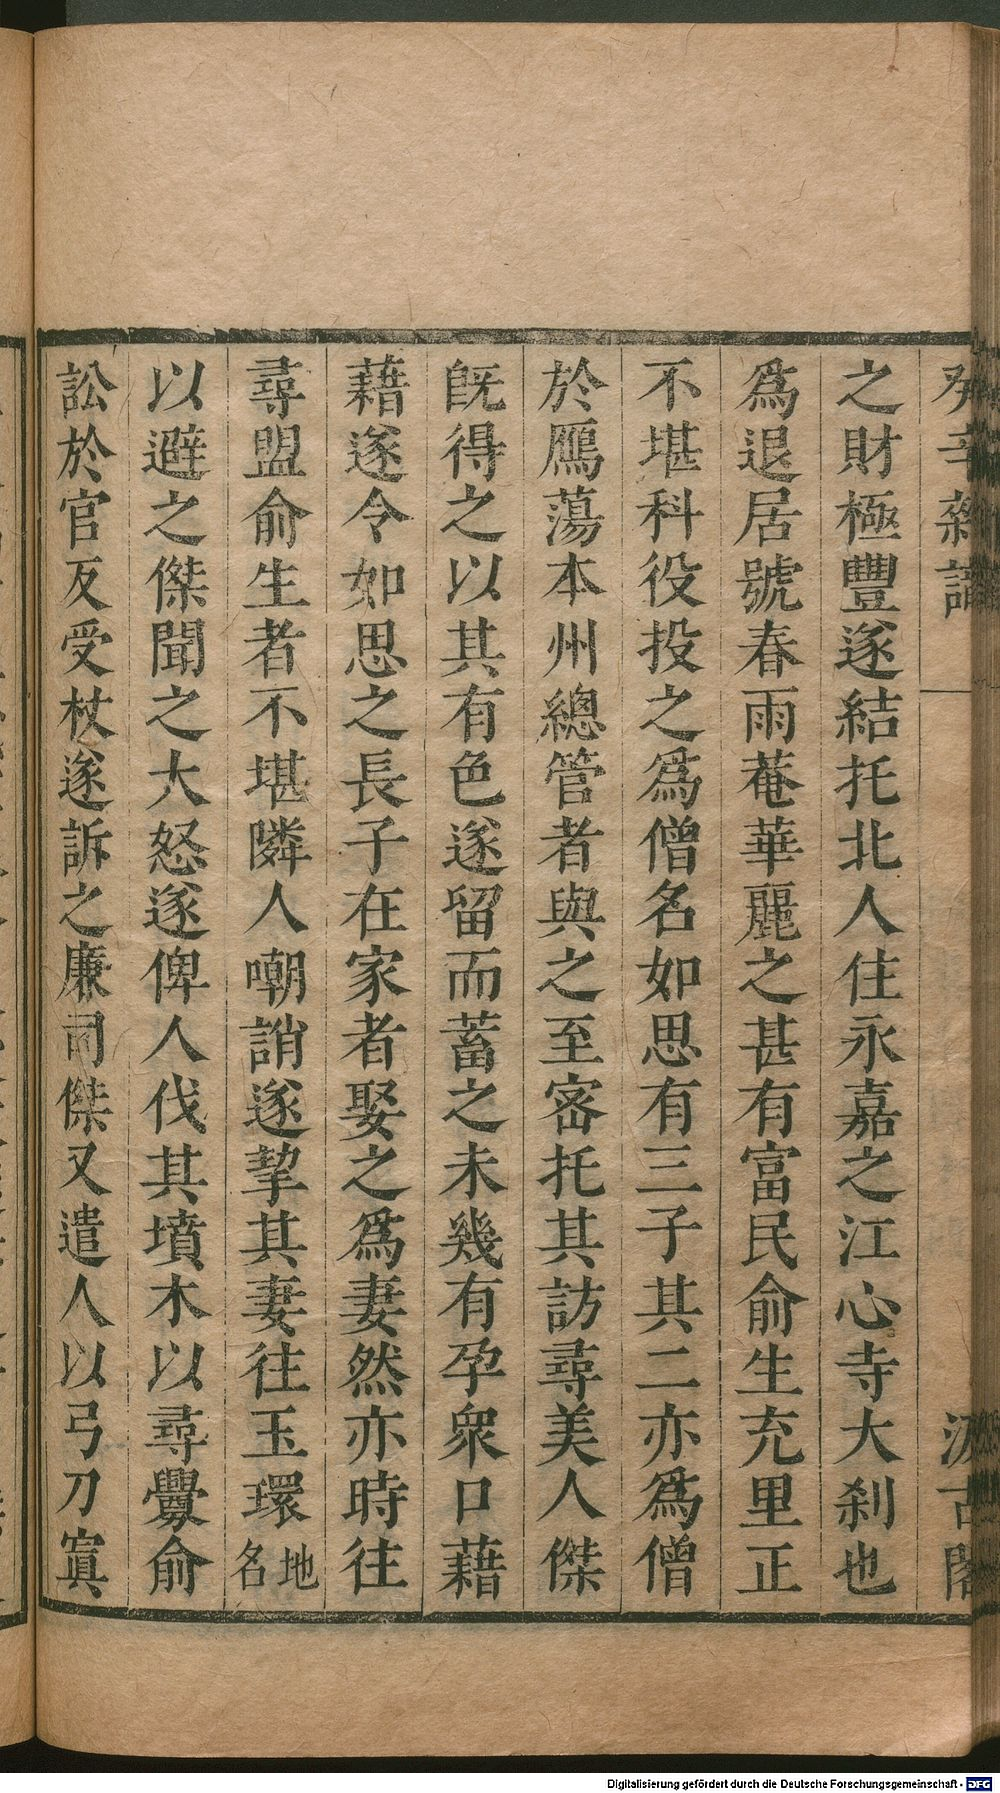 癸辛雜識
汲古閣
之財極豐遂結托北人住永嘉之江心寺大刹也
爲退居號春雨菴華麗之甚有富民俞生充里正
不堪科役投之爲僧名如思有三子其二亦爲僧
於鴈蕩本州總管者與之至密托其訪尋美人傑
旣得之以其有色遂留而蓄之未幾有孕衆口藉
藉遂令如思之長子在家者娶之爲妻然亦時往
尋盟俞生者不堪隣人嘲誚遂挈其妻往玉環地名
以避之傑聞之大怒遂俾人伐其墳木以尋釁俞
訟於官反受杖遂訴之廉司傑又遣人以弓刀寘
Digitalisierung gefördert durch die Deutsche Forschungsgemeinschaft - DFG